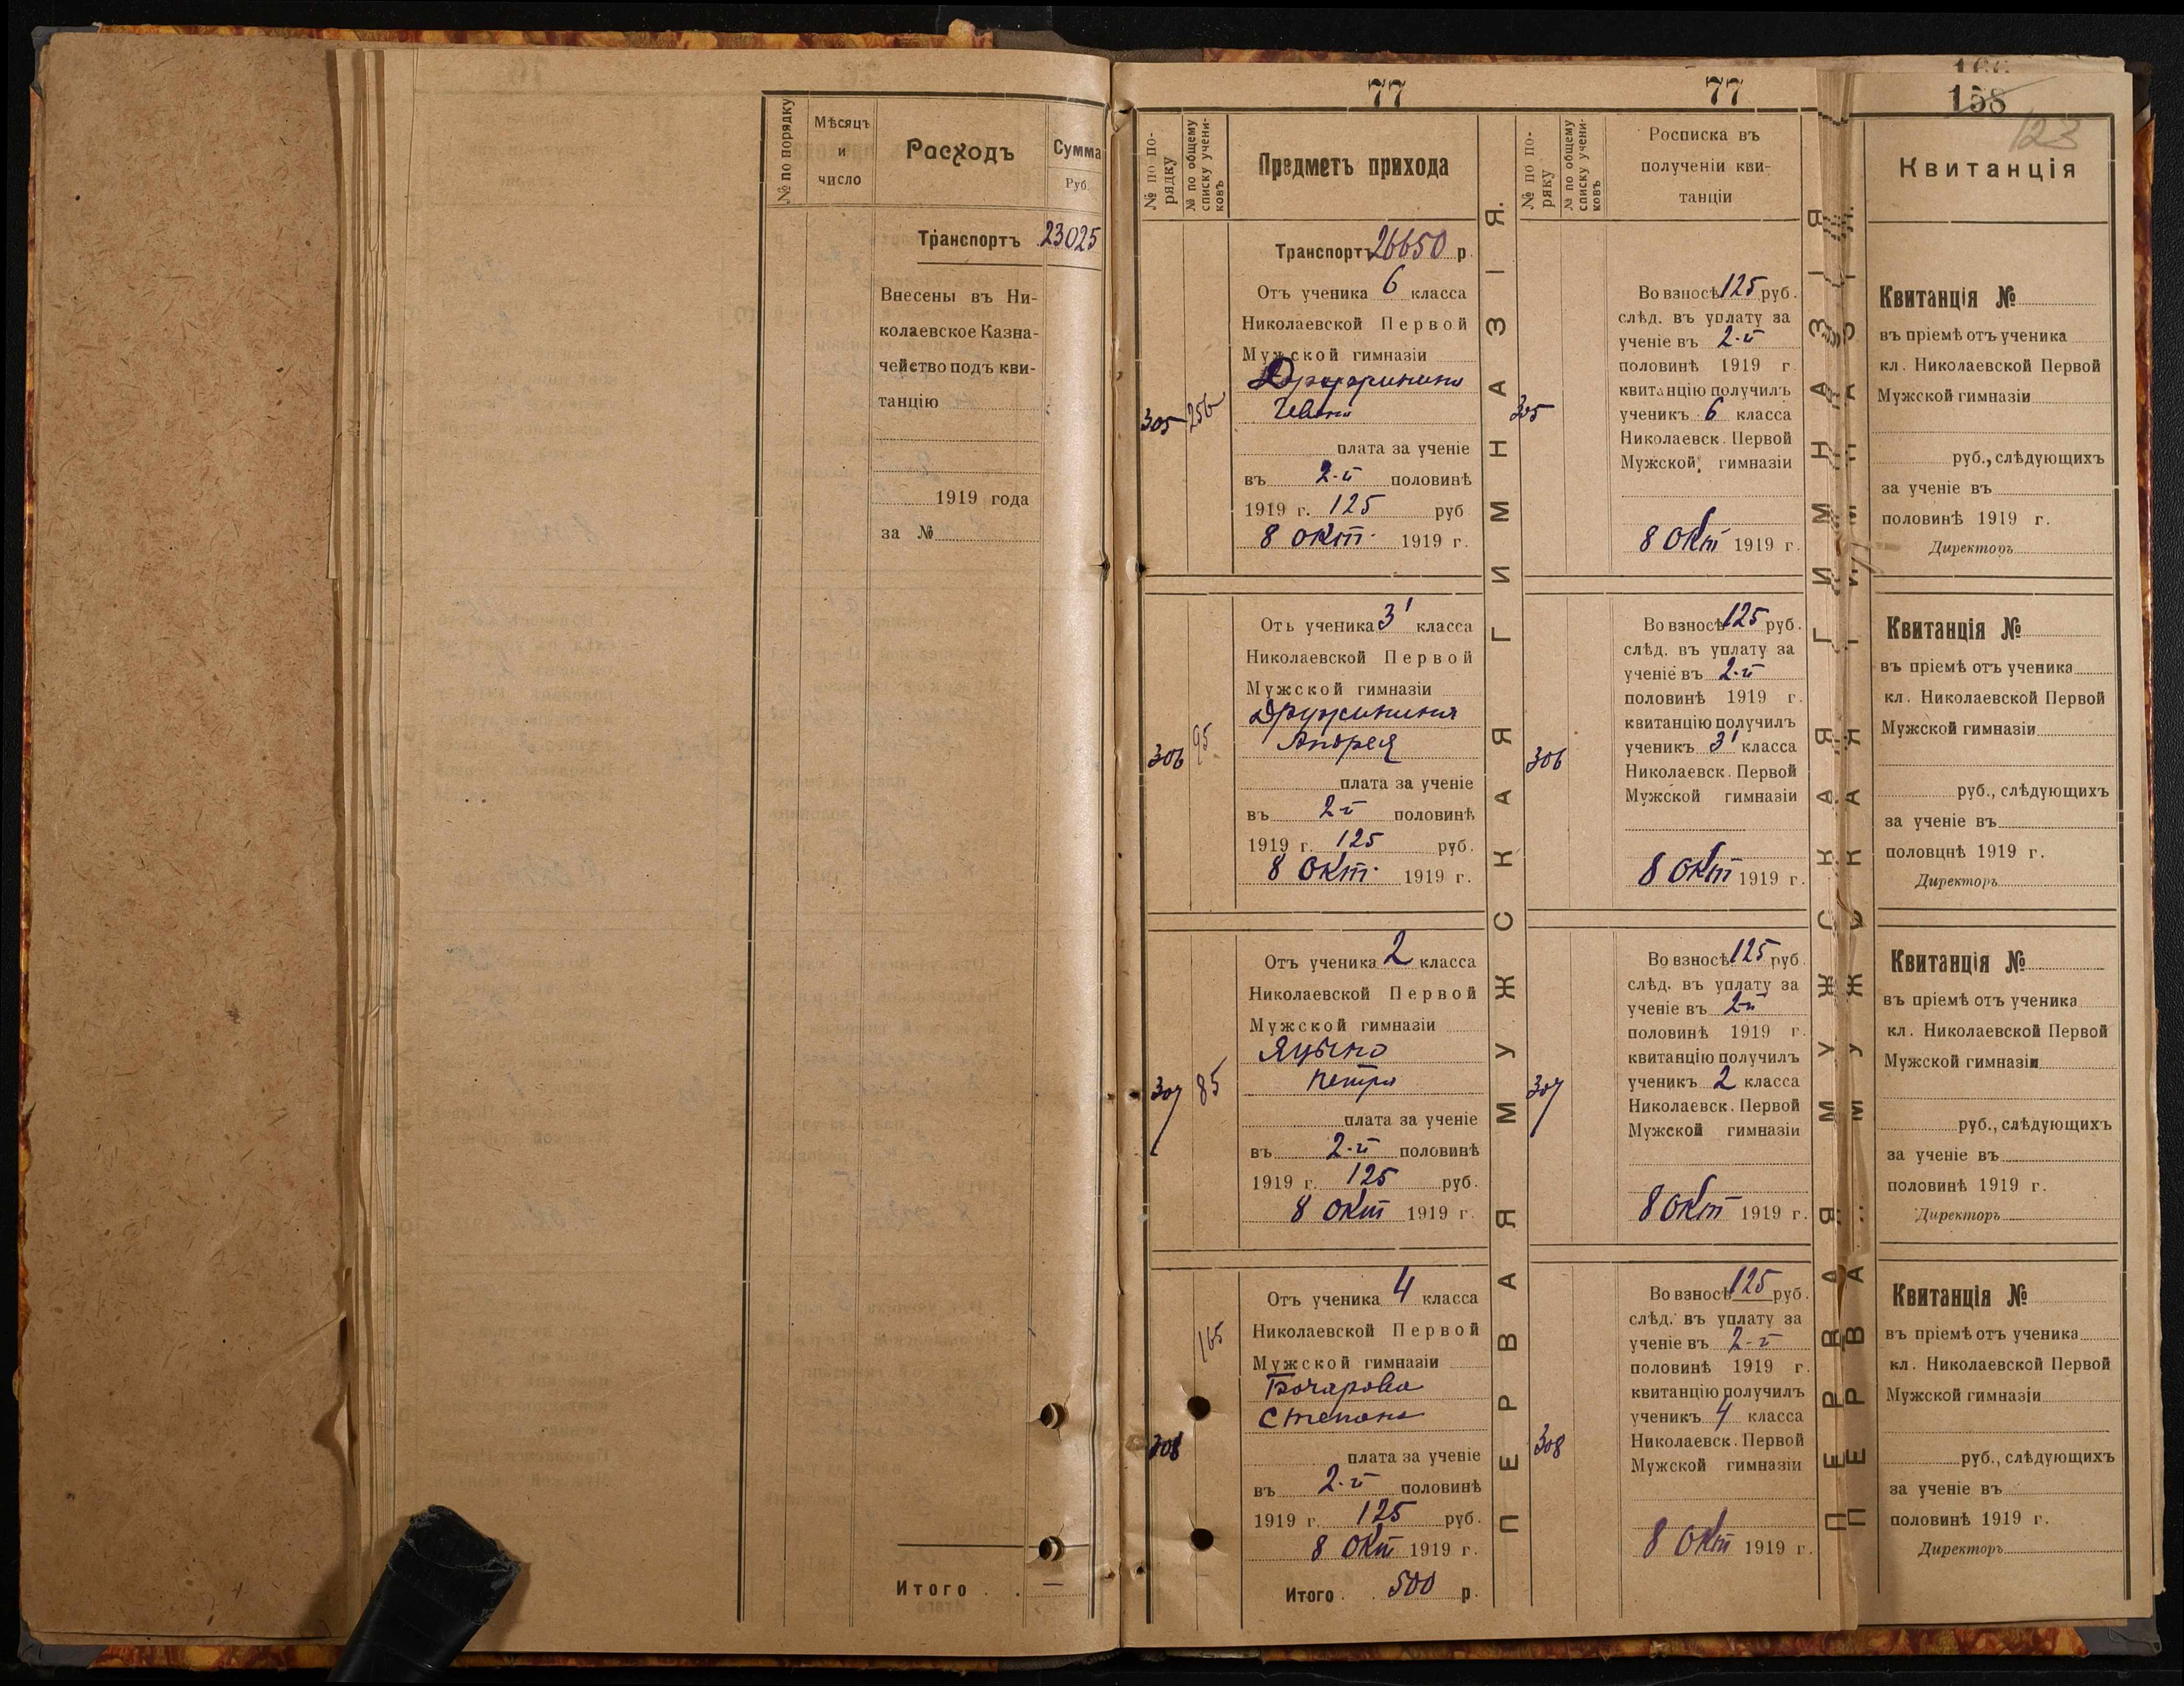 № по порядку
Мѣсяцъ
и
число
Расходъ
Сумма
Руб.
Транспортъ 23025
Внесены въ Ни-
колаевское Казна-
чейство подъ кви-
танцію
1919 года
за №
Итого . . —
77
№ по по-
рядку
№ по общему
списку учени-
ковъ
Предметъ прихода
Транспортъ 26650 р.
305
256
Отъ ученика 6 класса
Николаевской Первой
Мужской гимназіи
плата за ученіе
въ 2-й половинѣ
1919 г. 125 руб
8 окт. 1919 г.
306
95
Отъ ученика 3' класса
Николаевской Первой
Мужской гимназіи
Дружинина
Андрея
плата за ученіе
въ 2-й половинѣ
1919 г. 125 руб.
8 Окт. 1919 г.
307
85
Отъ ученика 2 класса
Николаевской Первой
Мужской гимназіи
Яцыно
Петра
плата за ученіе
въ 2-й половинѣ
1919 г. 125 руб.
8 Окт 1919 г.
308
165
Отъ ученика 4 класса
Николаевской Первой
Мужской гимназіи
Бочарова
Степана
плата за ученіе
въ 2-й половинѣ
1919 г. 125 руб.
8 Окт 1919 г.
Итого . . 500 р.
ПЕРВАЯ МУЖСКАЯ ГИМНАЗІЯ.
77
№ по по-
ряку
№ по общему
списку учени-
ковъ
Росписка въ
полученіи кви-
танціи
305
Во взносѣ 125 руб.
слѣд. въ уплату за
ученіе въ 2-й
половинѣ 1919 г.
квитанцію получилъ
ученикъ 6 класса
Николаевск. Первой
Мужской гимназіи
8 Окт 1919 г.
306
Во взносѣ 125 руб.
слѣд. въ уплату за
ученіе въ 2-й
половинѣ 1919 г.
квитанцію получилъ
ученикъ 3' класса
Николаевск. Первой
Мужской гимназіи
8 Окт 1919 г.
307
Во взносѣ 125 руб.
слѣд. въ уплату за
ученіе въ 2-й
половинѣ 1919 г.
квитанцію получилъ
ученикъ 2 класса
Николаевск. Первой
Мужской гимназіи
8 Окт 1919 г.
308
Во взносѣ 125 руб.
слѣд. въ уплату за
ученіе въ 2-й
половинѣ 1919 г.
квитанцію получилъ
ученикъ 4 класса
Николаевск. Первой
Мужской гимназіи
8 Окт 1919 г.
ПЕРВАЯ МУЖСКАЯ ГИМНАЗІЯ
158
123
Квитанція
Квитанція №
въ пріемѣ отъ ученика
кл. Николаевской Первой
Мужской гимназіи
руб., слѣдующихъ
за ученіе въ
половинѣ 1919 г.
Директоръ
Квитанція №
въ пріемѣ отъ ученика
кл. Николаевской Первой
Мужской гимназіи
руб., слѣдующихъ
за ученіе въ
половцнѣ 1919 г.
Директоръ
Квитанція №
въ пріемѣ отъ ученика
кл. Николаевской Первой
Мужской гимназіи
руб., слѣдующихъ
за ученіе въ
половинѣ 1919 г.
Директоръ
Квитанція №
въ пріемѣ отъ ученика
кл. Николаевской Первой
Мужской гимназіи
руб., слѣдующихъ
за ученіе въ
половинѣ 1919 г.
Директоръ